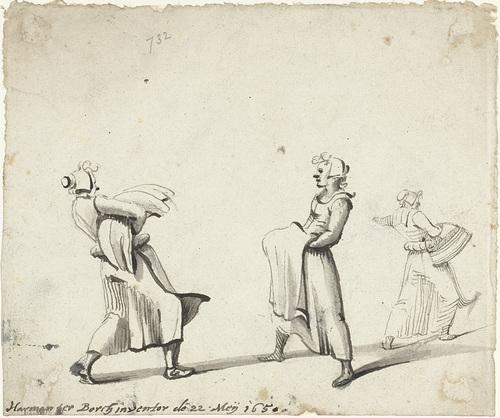 732
Harman ter Borch inventor de 22 Meij 1650